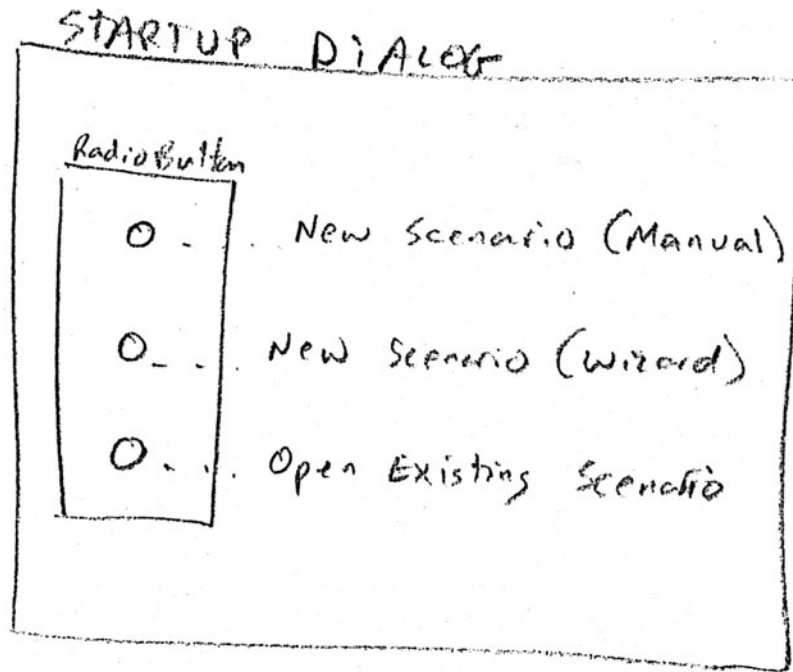 STARTUP DiALOG
RadioButton
New Scenario (Manual)
New Scenario (Wizard)
Open Existing Scenario